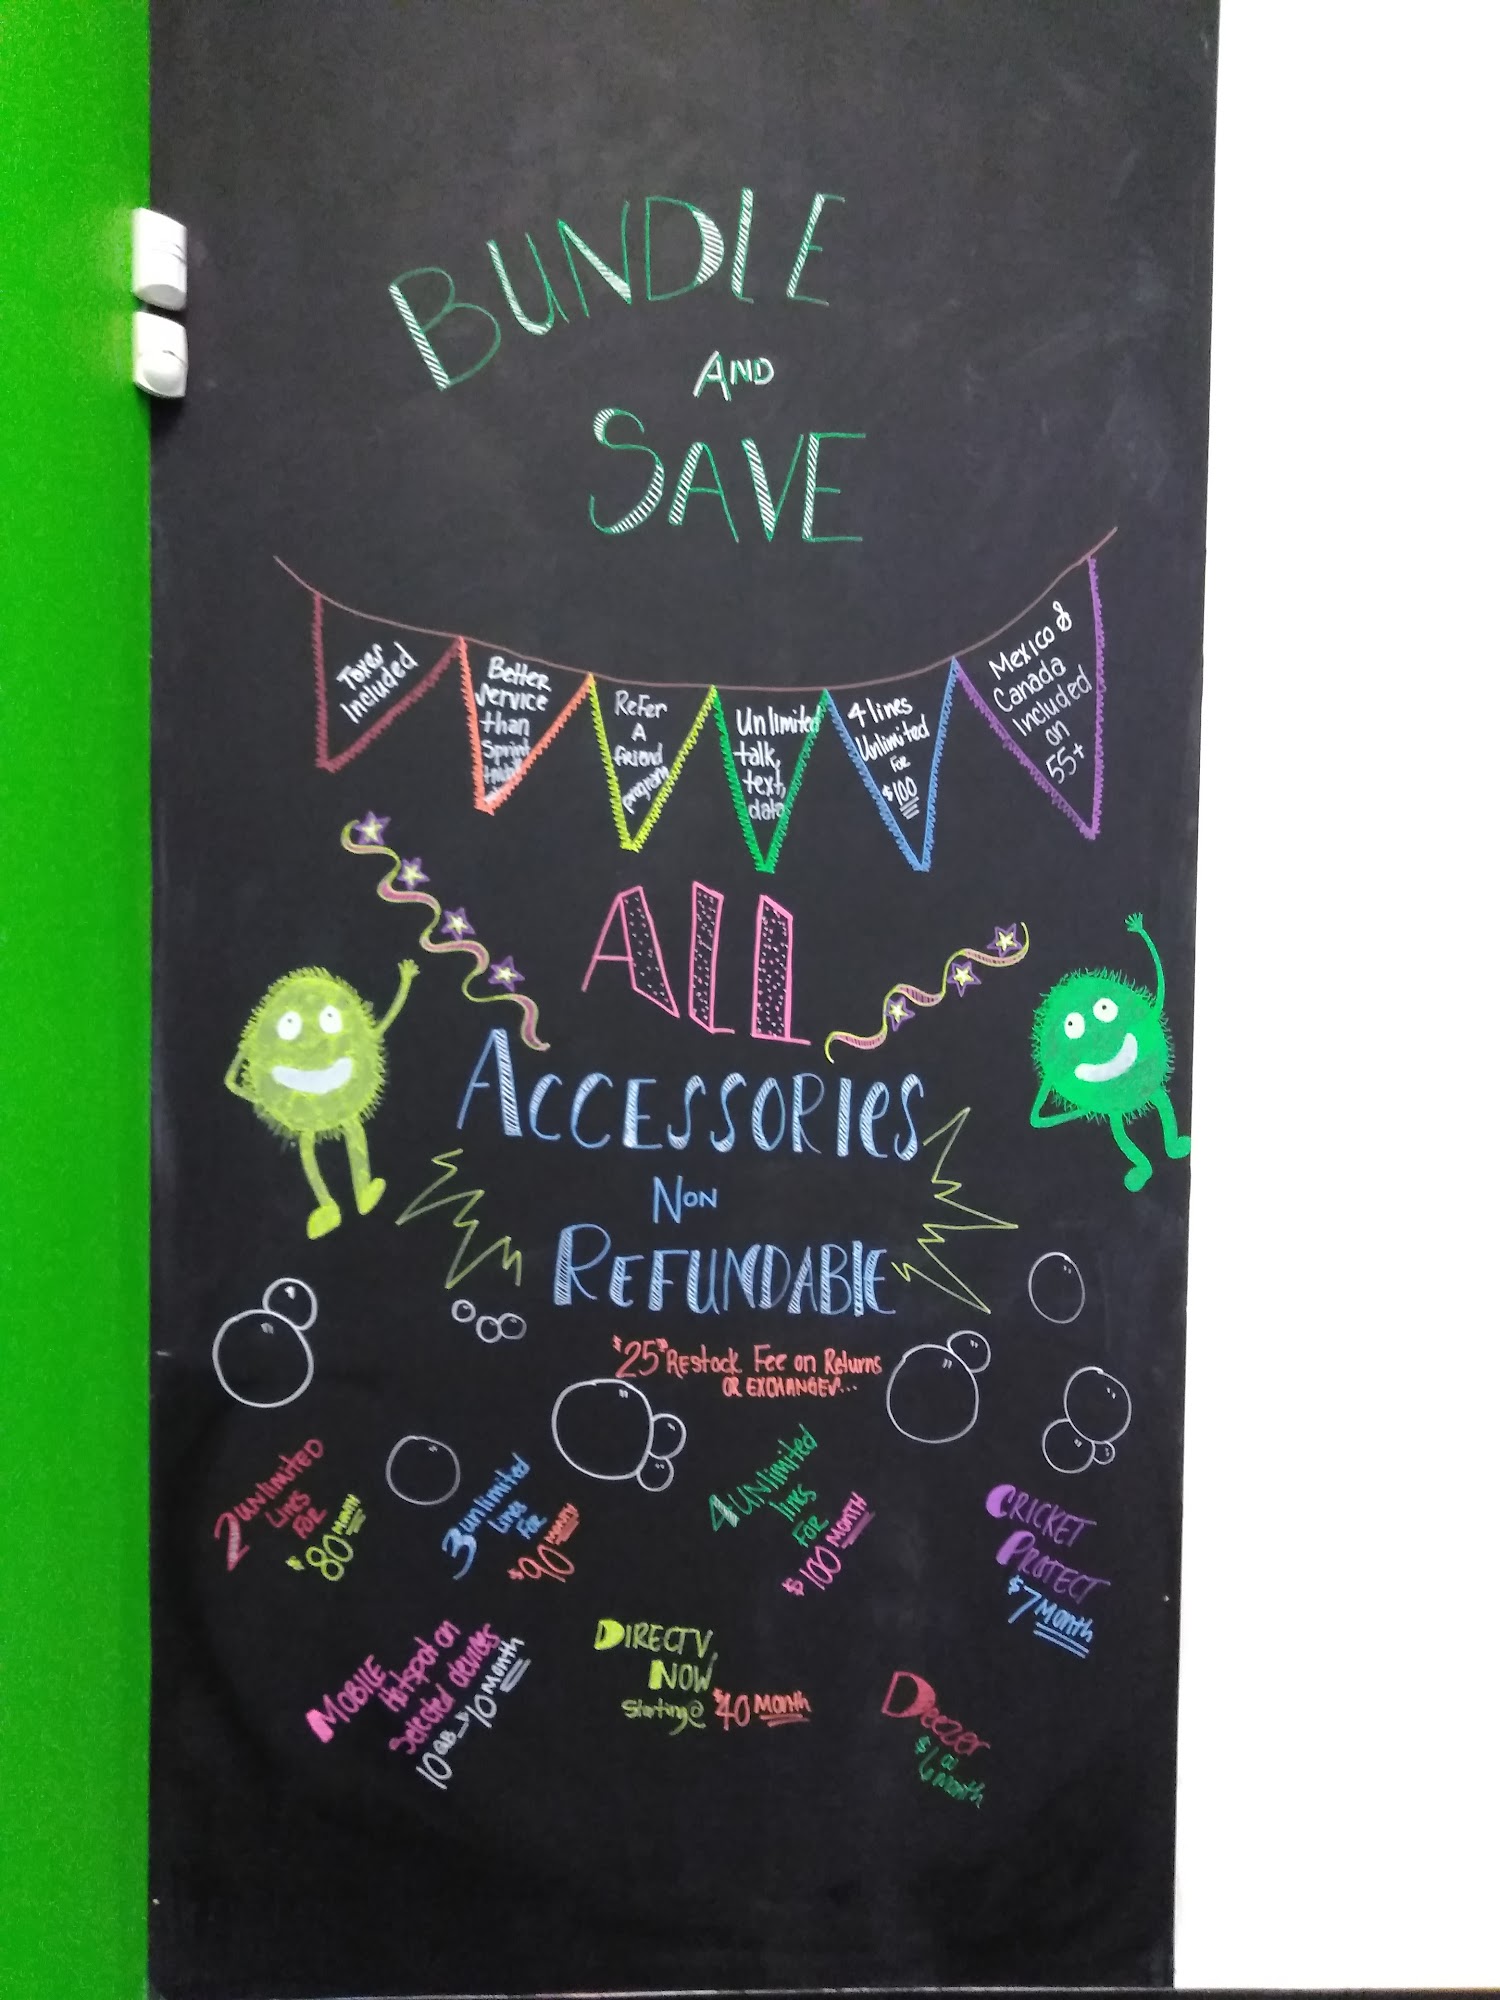 BUNDLE
AND
SAVE
Taxes
Included
Better
Service
than
Sprint
Refer
A
friend
program
Unlimited
talk,
text,
data
4 lines
Unlimited
For
$100
Mexico &
Canada
Included
on
55+
ALL
ACCESSORIES
NON
REFUNDABLE
$25 Restock Fee on Returns
OR EXCHANGES...
2 UNLIMITED
LINES
FOR
$80 MONTH
3 unlimited
Lines
For
$90 MONTH
4 UNLIMITED
lines
FOR
$100 MONTH
CRICKET
PROTECT
$7 Month
MOBILE
Hotspot on
Selected devices
10GB_$10 MONTH
DIRECTV
NOW
Starting@ $40 Month
Deezer
$6 Month